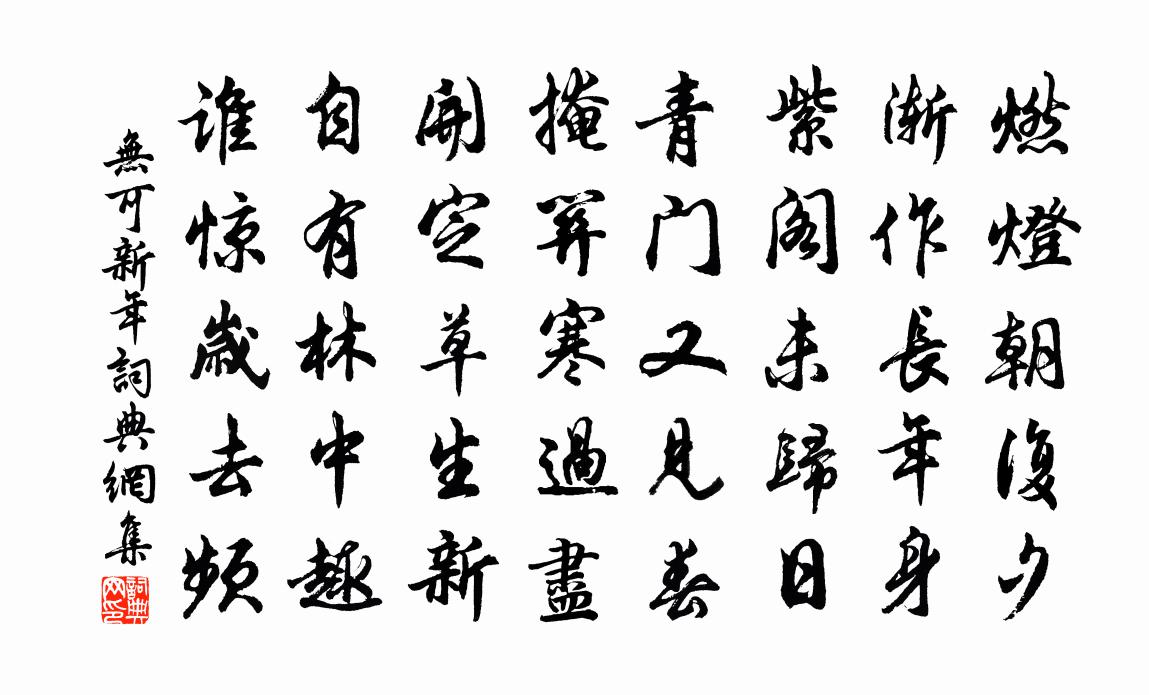 燃燈朝復夕
渐作長年身
紫阁未歸日
青门又见春
掩關寒過盡
開定草生新
自有林中趣
谁惊歲去频
無可新年詞典網集
詞典网印